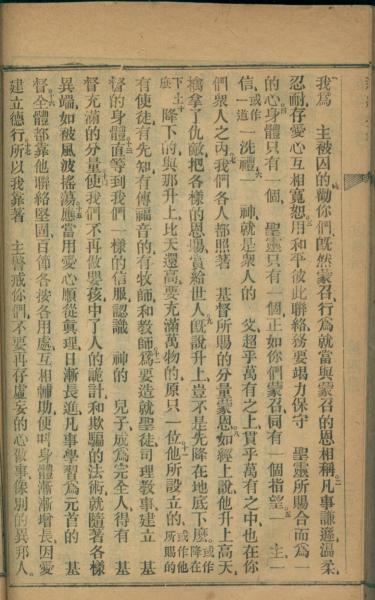 我爲　主被囚的勸你們旣然蒙召行爲就當與蒙召的恩相稱凡事謙遜溫柔
忍耐存愛心互相寬恕用和平彼此聯絡務要竭力保守　聖靈所賜合而爲一
的心身體只有一個　聖靈只有一個正如你們蒙召同有一個指望　主一
信或作一道一洗禮一　神就是衆人的　父超乎萬有之上貫乎萬有之中也在你
們衆人之內我們各人都照著　基督所賜的分量蒙恩如經上說他升上高天
擄拿了仇敵把各樣的恩賜賞給世人旣說升上豈不是先降在地底下麽或作降在
下土十底降下的與那升上比天還高要充滿萬物的原只一位他所設立的或作他所賜的
有使徒有先知有傳福音的有牧師和敎師爲要造就聖徒司理敎事建立　基
督的身體直等到我們一樣的信服認識　神的　兒子成爲完全人得有　基
督充滿的分量使我們不再做嬰孩中了人的詭計和欺騙的法術就隨著各樣
異端如被風波搖蕩應當用愛心順從眞理日漸長進凡事學習爲元首的　基
督全體都靠他聯絡堅固百節各按各用處互相輔助使叫身體漸漸增長因愛
建立德行所以我靠著　主警戒你們不要再存虛妄的心做事像別的異邦人